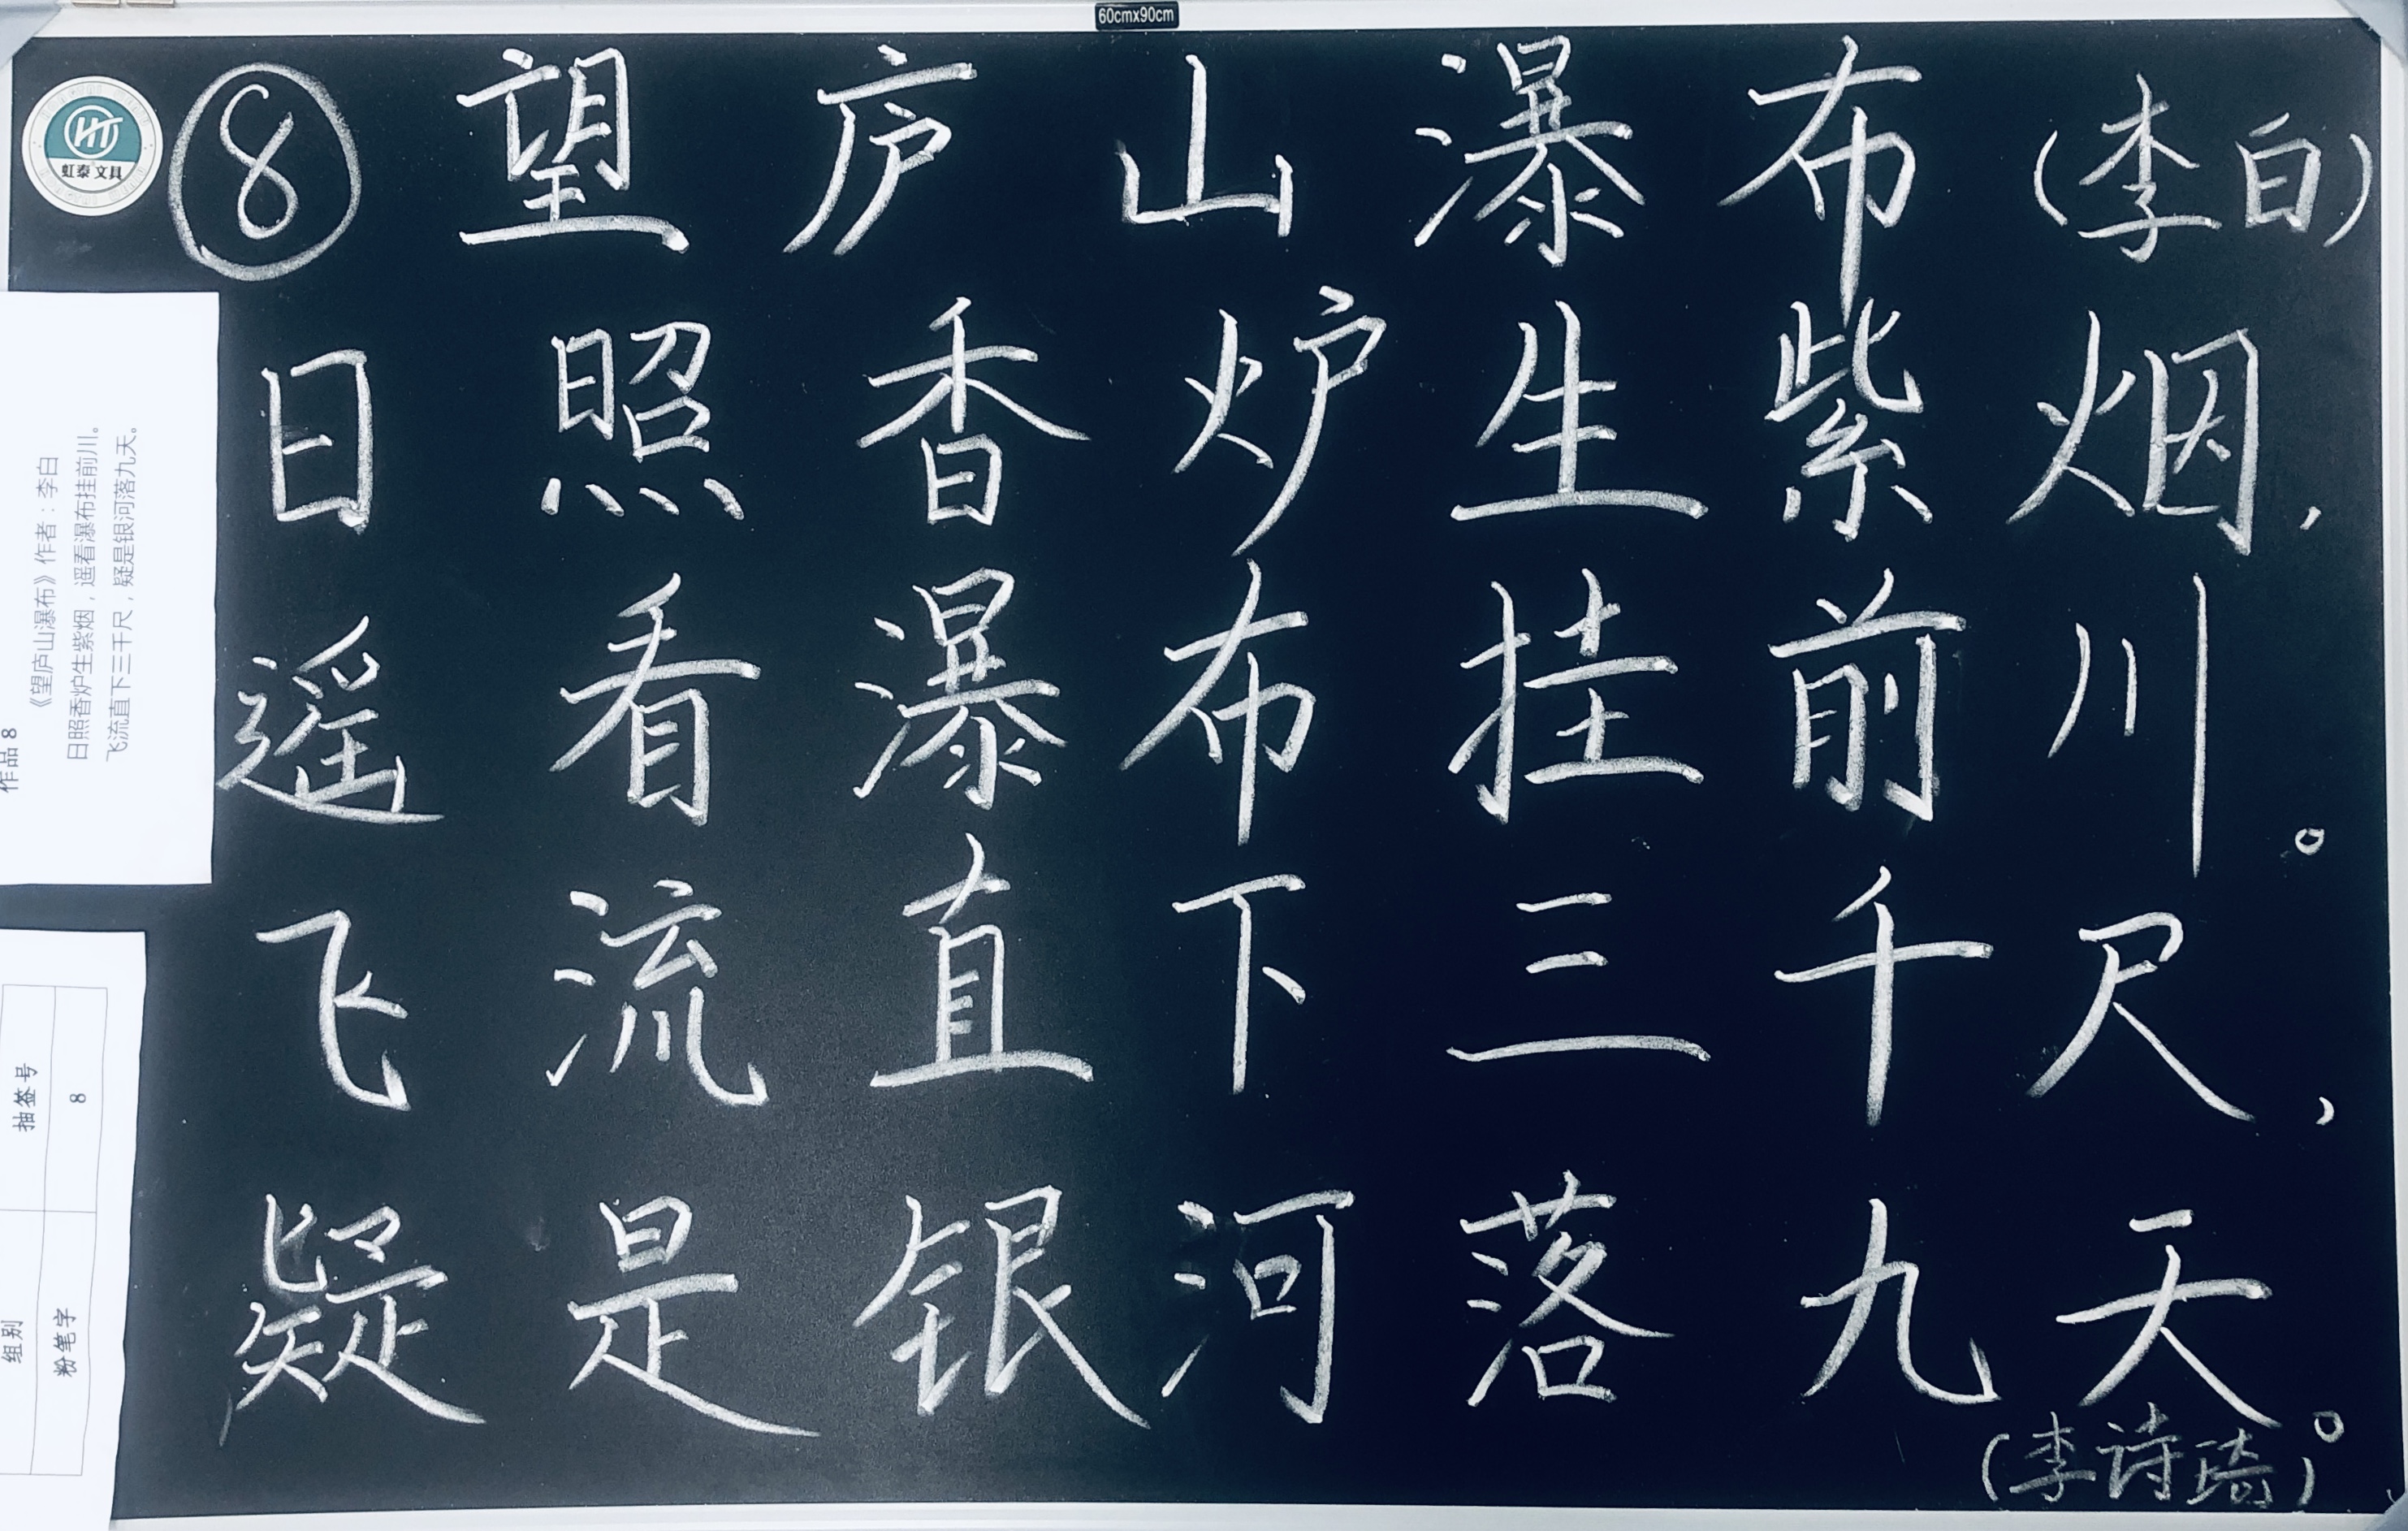 60cmx90cm
HT
虹泰文具
⑧ 望庐山瀑布（李白）
日照香炉生紫烟，
遥看瀑布挂前川。
飞流直下三千尺，
疑是银河落九天。
（李诗琦）
作品 8
《望庐山瀑布》作者：李白
日照香炉生紫烟，遥看瀑布挂前川。
飞流直下三千尺，疑是银河落九天。
组别 抽签号
粉笔字 8